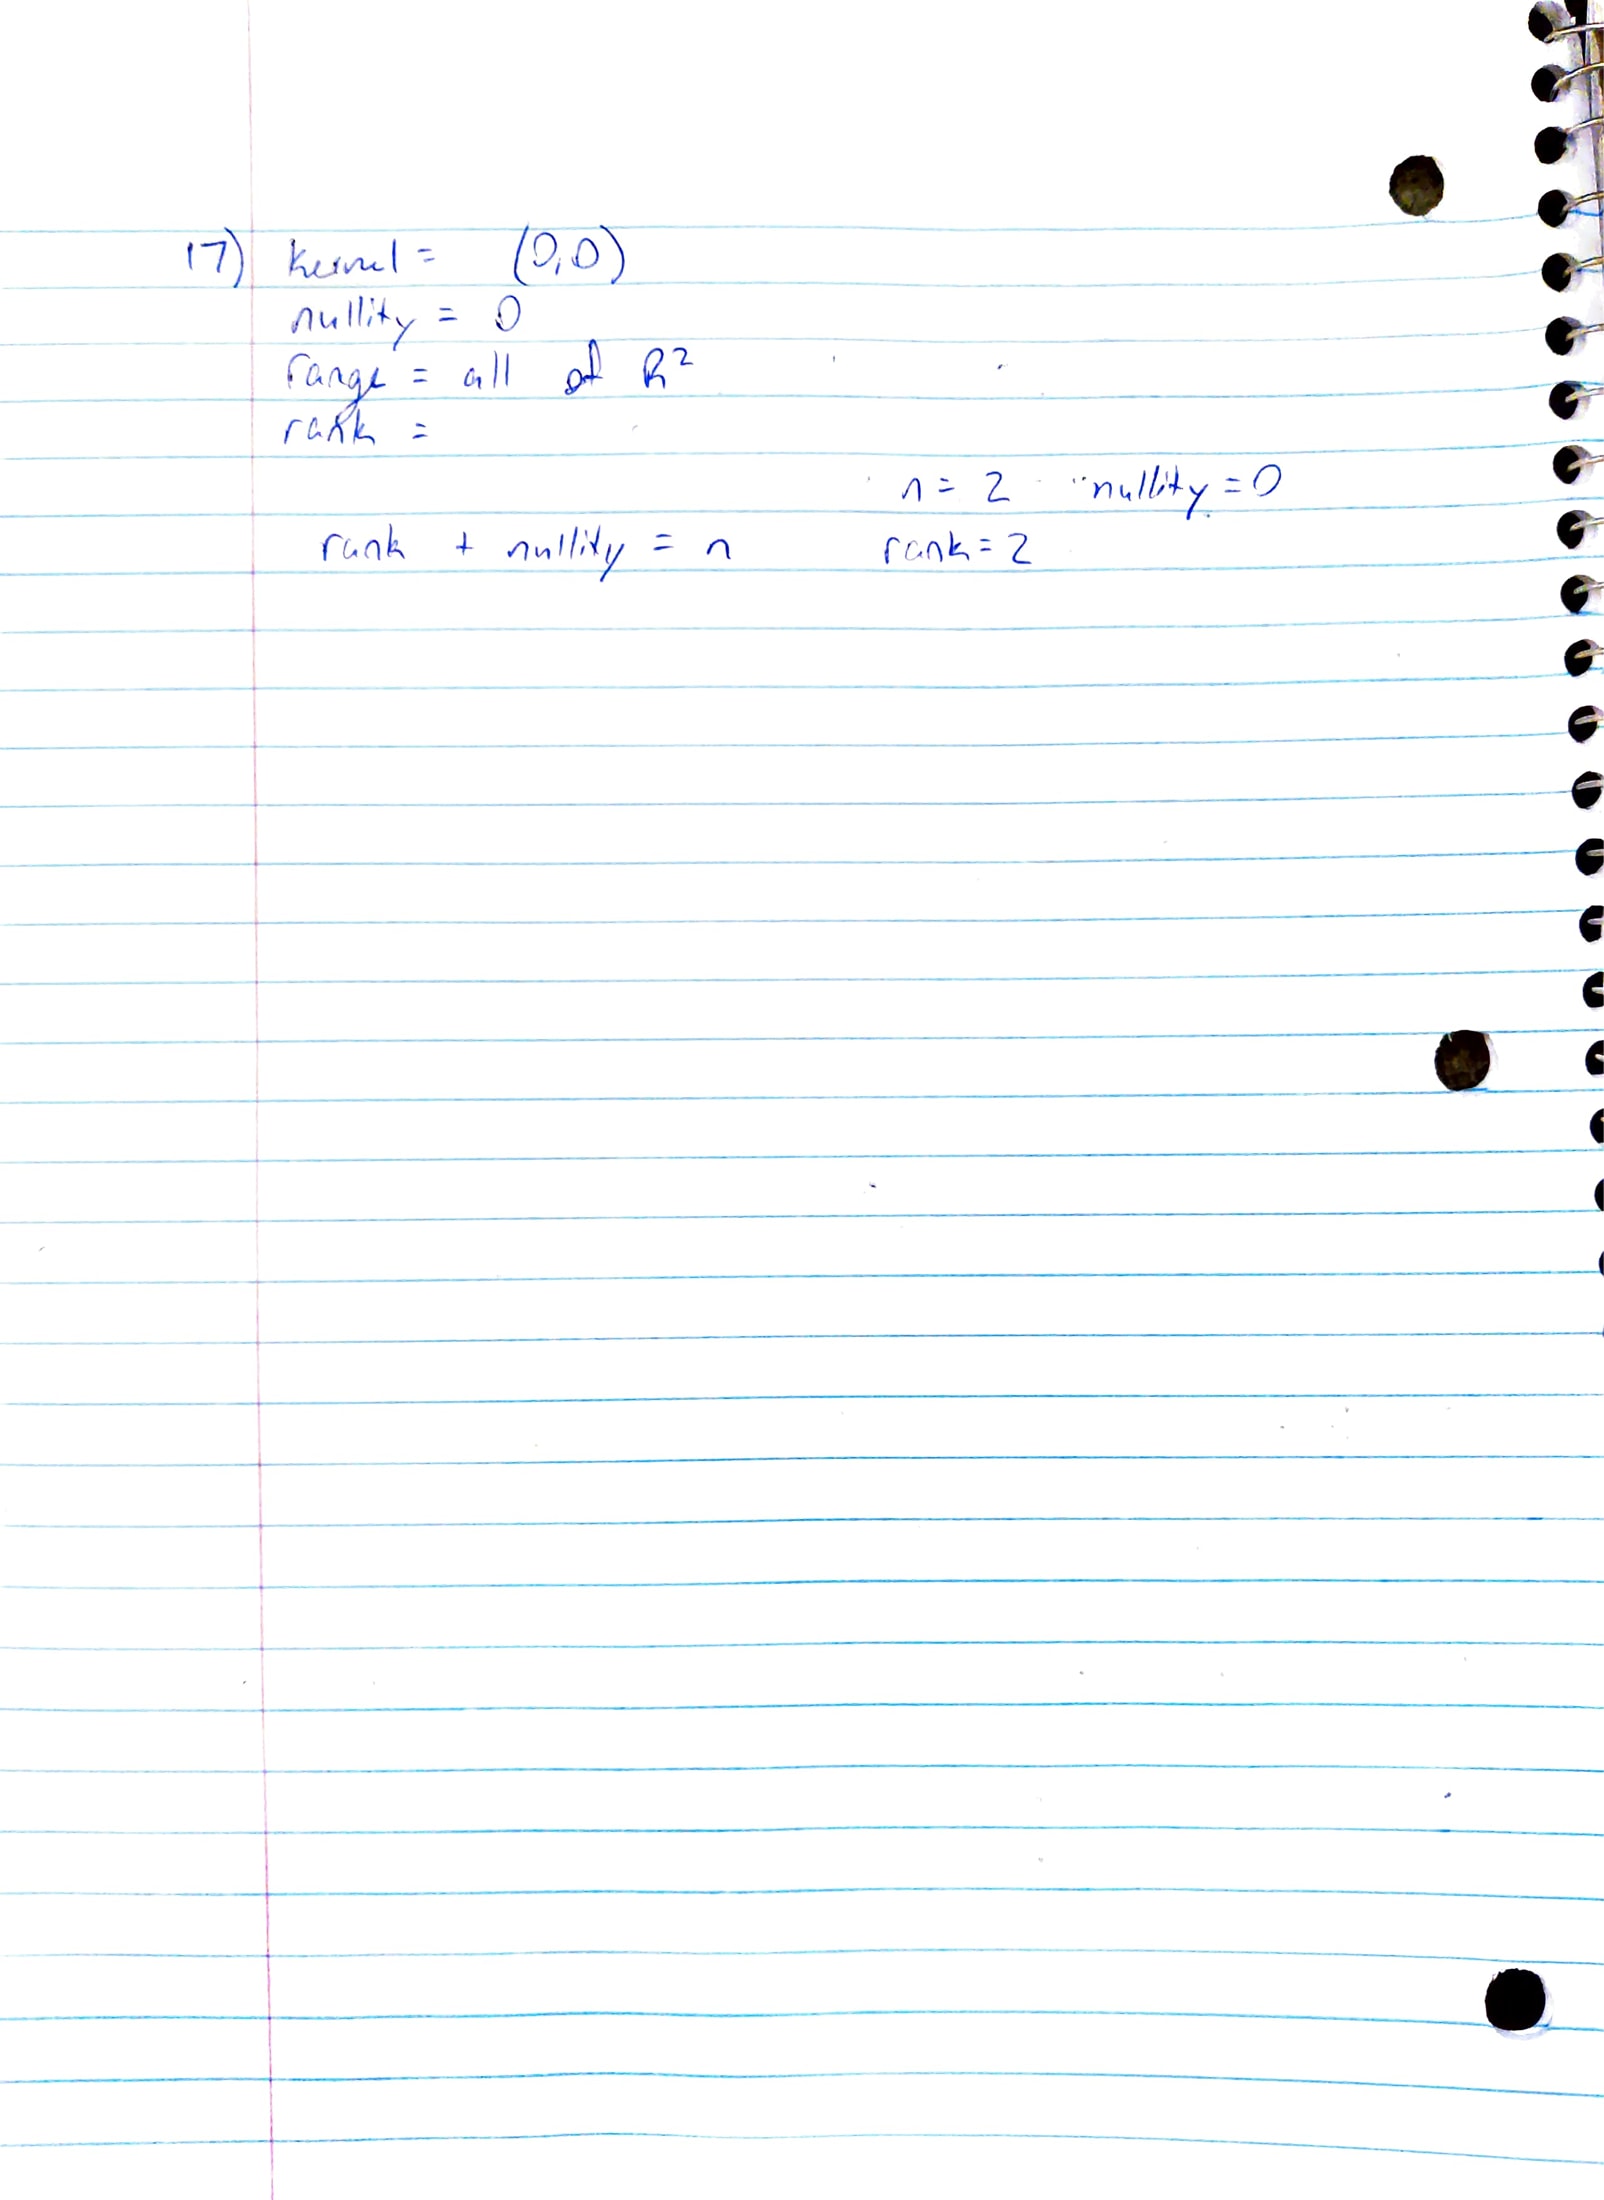 17) kernel = (0,0)
nullity = 0
range = all of R²
rank =
n = 2 nullity = 0
rank + nullity = n rank = 2